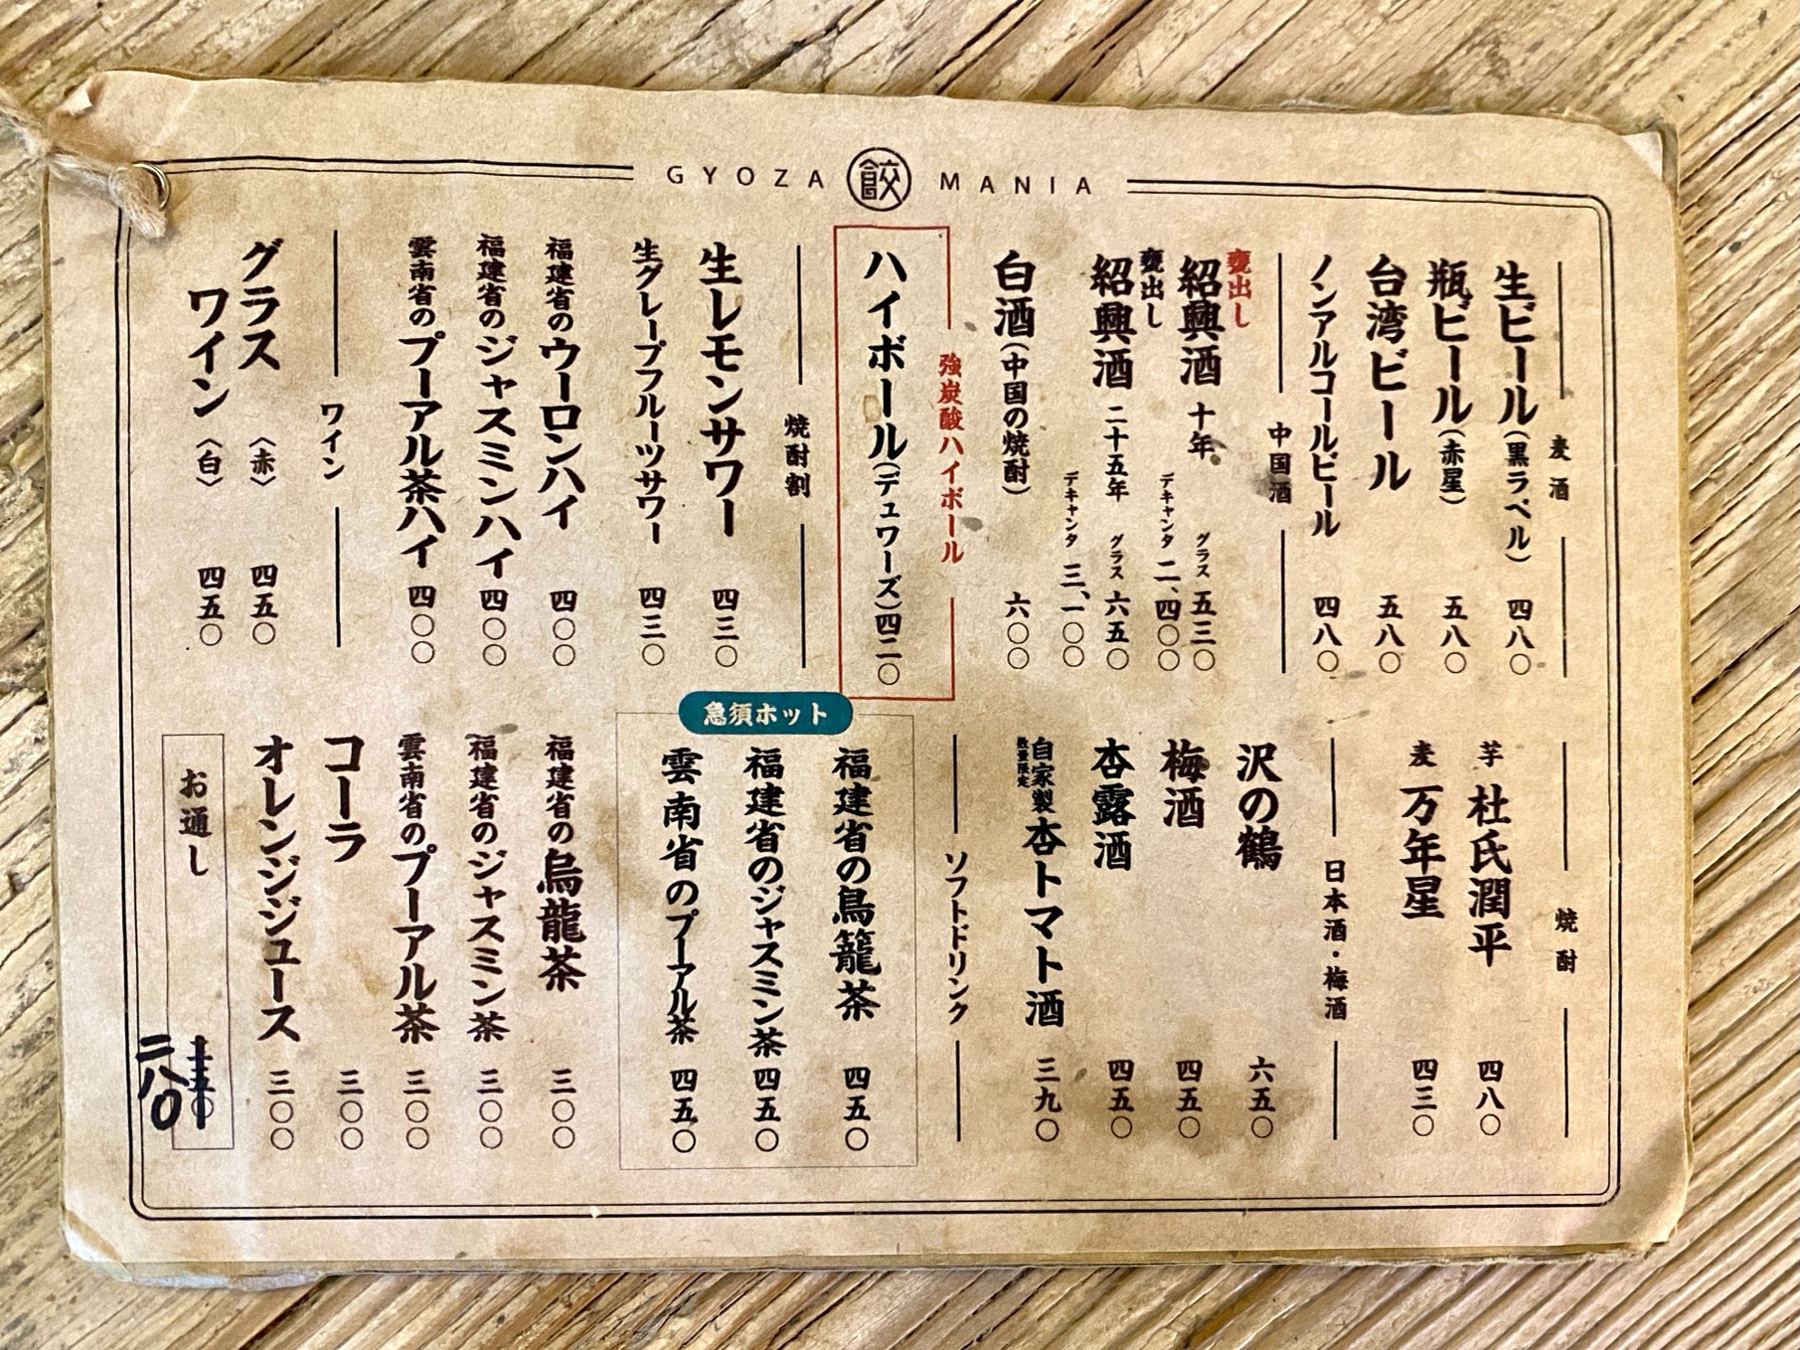 GYOZA 餃 MANIA
麦酒
生ビール(黒ラベル) 四八〇
瓶ビール(赤星) 五八〇
台湾ビール 五八〇
ノンアルコールビール 四八〇
中国酒
甕出し
紹興酒 十年 グラス 五三〇
デキャンタ 二、四〇〇
甕出し
紹興酒 二十五年 グラス 六五〇
デキャンタ 三、一〇〇
白酒(中国の焼酎) 六〇〇
強炭酸ハイボール
ハイボール(デュワーズ)四二〇
焼酎割
生レモンサワー 四三〇
生グレープフルーツサワー 四三〇
福建省のウーロンハイ 四〇〇
福建省のジャスミンハイ 四〇〇
雲南省のプーアル茶ハイ 四〇〇
ワイン
グラス 〈赤〉 四五〇
ワイン 〈白〉 四五〇
焼酎
芋 杜氏潤平 四八〇
麦 万年星 四三〇
日本酒・梅酒
沢の鶴 六五〇
梅酒 四五〇
杏露酒 四五〇
自家製杏トマト酒 三九〇
数量限定
ソフトドリンク
急須ホット
福建省の烏籠茶 四五〇
福建省のジャスミン茶 四五〇
雲南省のプーアル茶 四五〇
福建省の烏龍茶 三〇〇
福建省のジャスミン茶 三〇〇
雲南省のプーアル茶 三〇〇
コーラ 三〇〇
オレンジジュース 三〇〇
お通し
二八〇